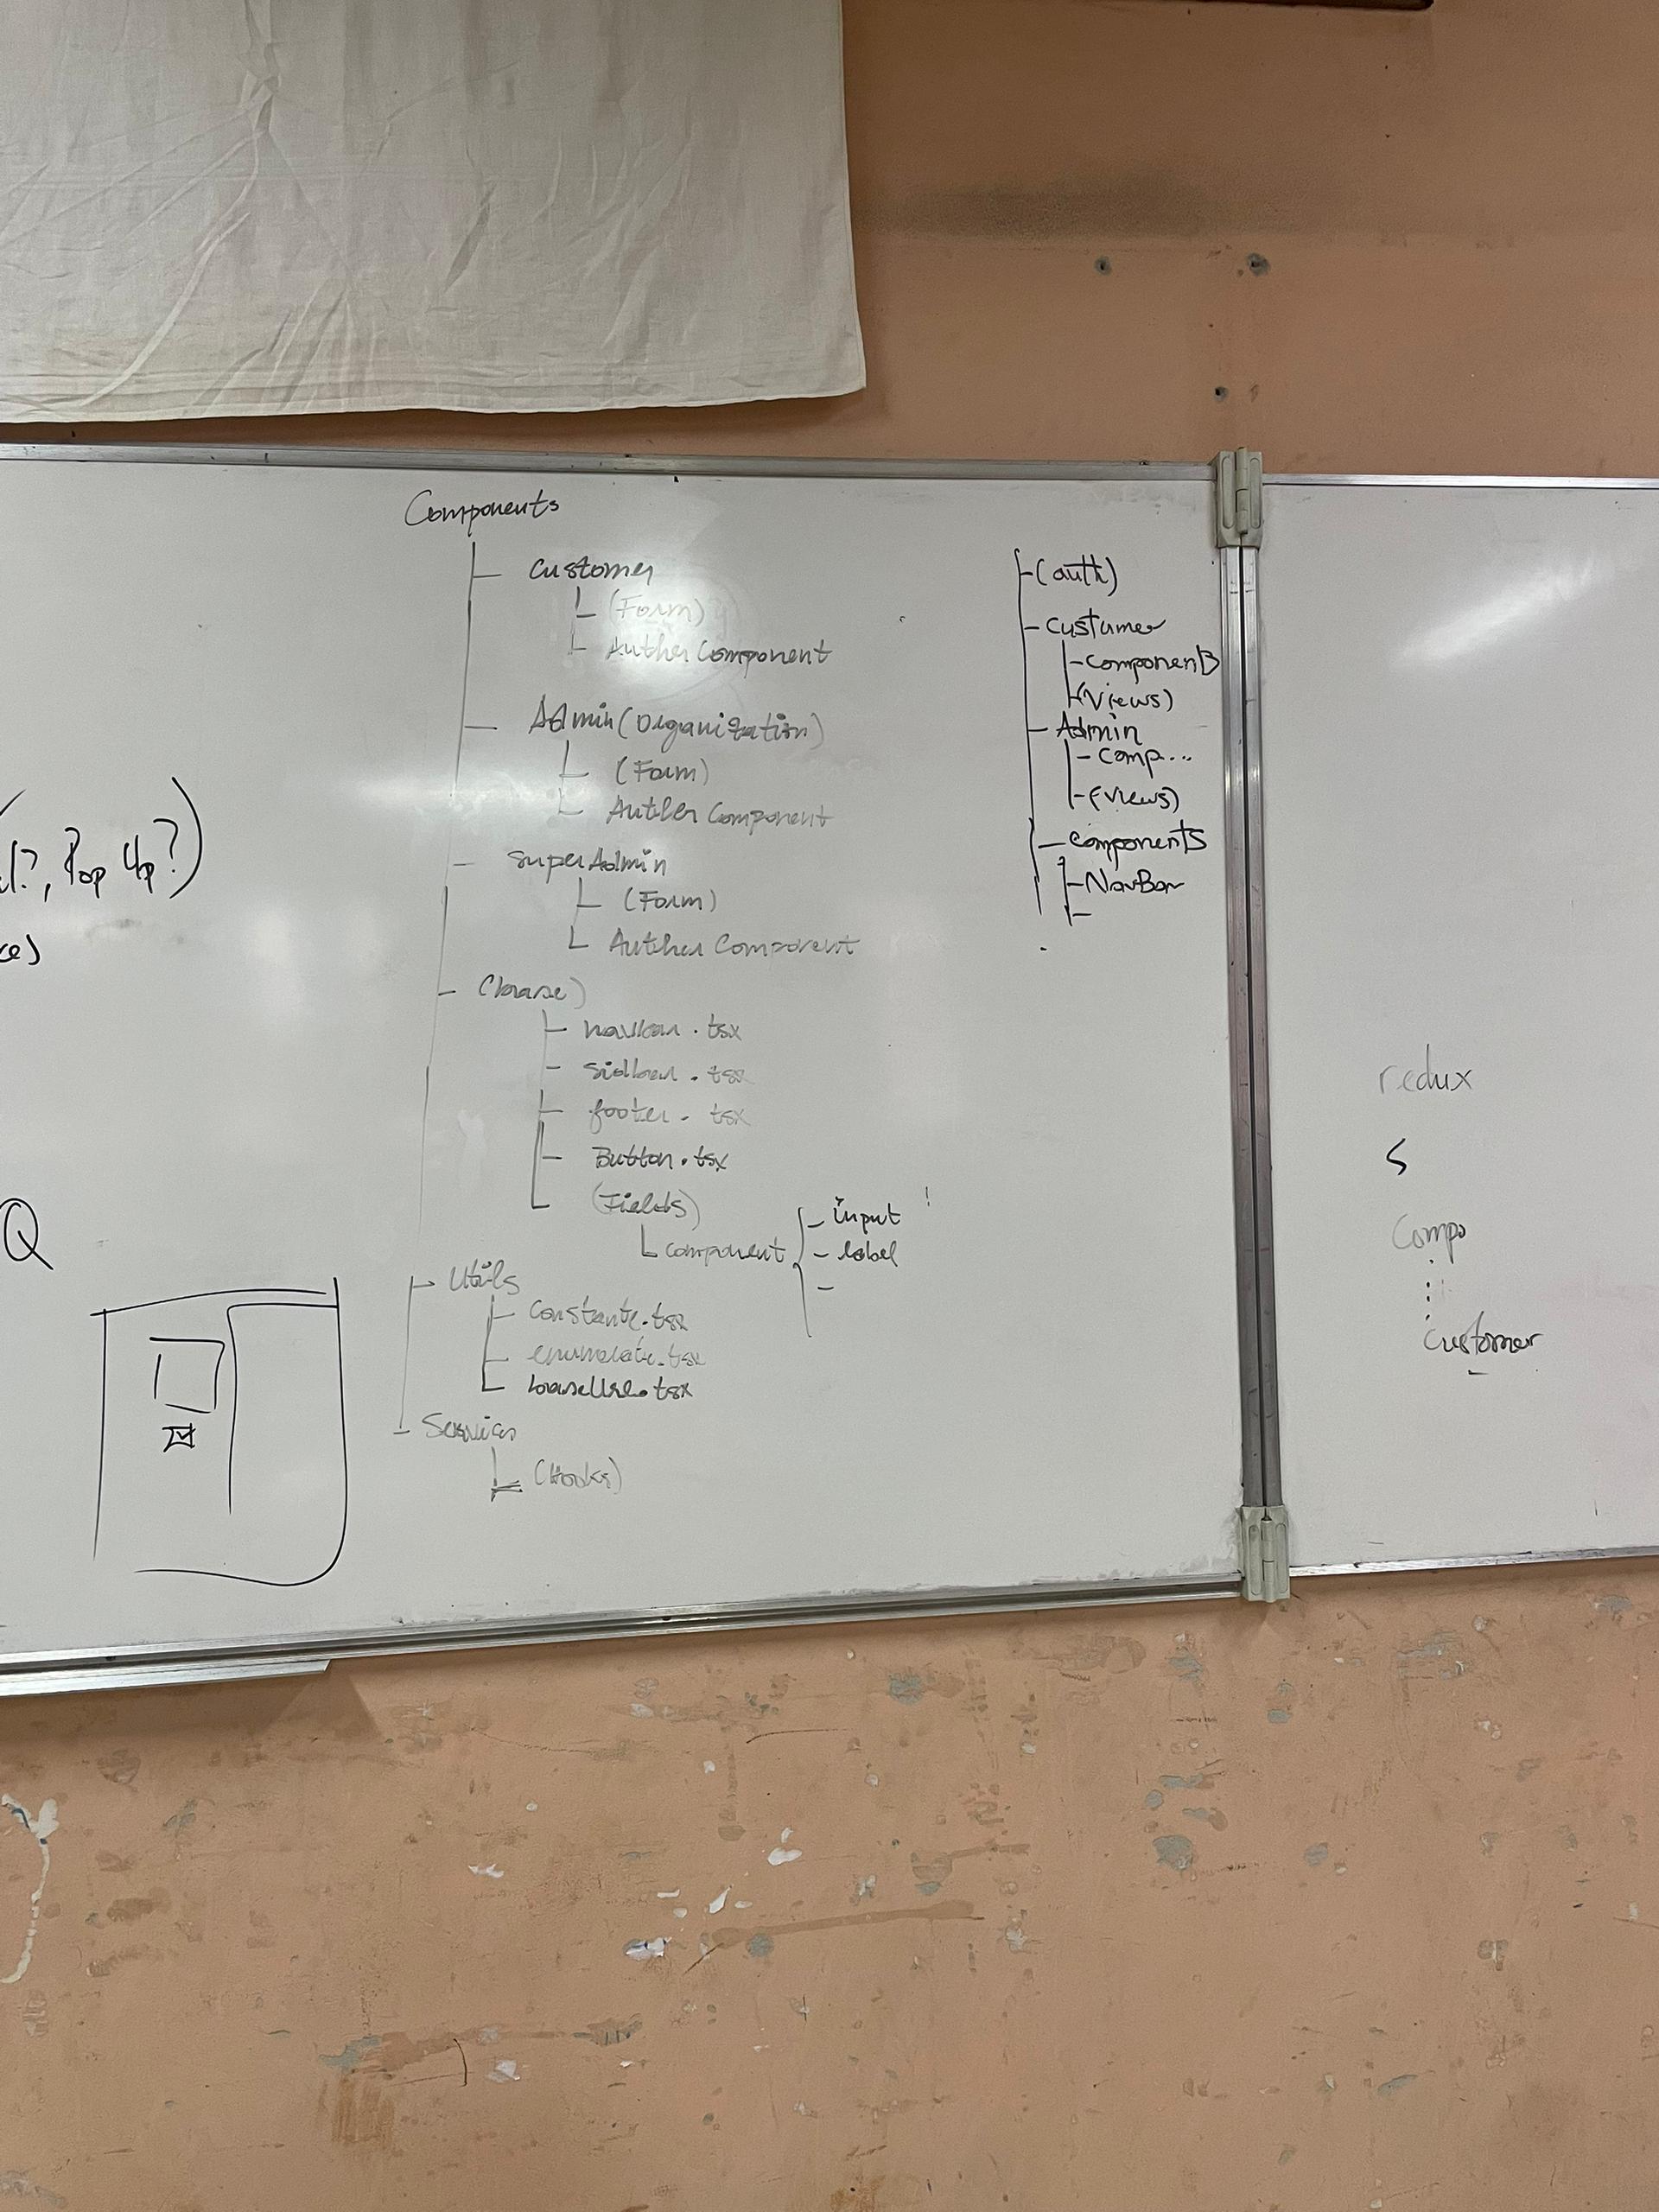 Pop Up?)
Q
Components
Customer
(Form)
Auther Component
Admin (Organization)
(Form)
Auther Component
superAdmin
(Form)
Auther Component
(base)
navbar.tsx
sidbar.tsx
footer.tsx
Button.tsx
(Fields)
component
input
label
Utils
Constante.tsx
baseUrl.tsx
Services
(Hooks)
(auth)
custumer
(views)
Admin
comp...
(views)
components
NavBar
redux
S
Compo
Customer